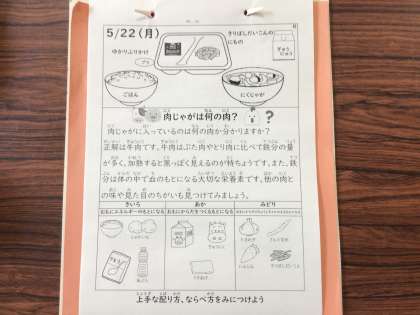 5/22(月)
きりぼしだいこんの
にもの
ゆかりふりかけ
ぎゅう
にゅう
ごはん
にくじゃが
肉じゃがは何の肉?
肉じゃがに入っているのは何の肉か分かりますか?
正解は牛肉です。牛肉はぶた肉やとり肉に比べて鉄分の量
が多く、加熱すると黒っぽく見えるのが特ちょうです。また、鉄
分は体の中で血のもとになる大切な栄養素です。他の肉と
の味や見た目のちがいも見つけてみましょう。
きいろ
あか
みどり
おもにエネルギーのもとになる
おもにからだをつくるもとになる
上手な配り方、ならべ方をみにつけよう